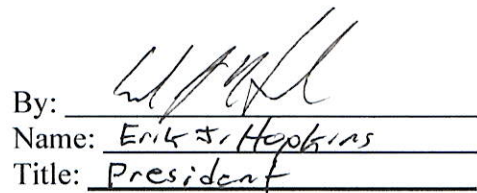 By:
Name: Erik J. Hopkins
Title: President